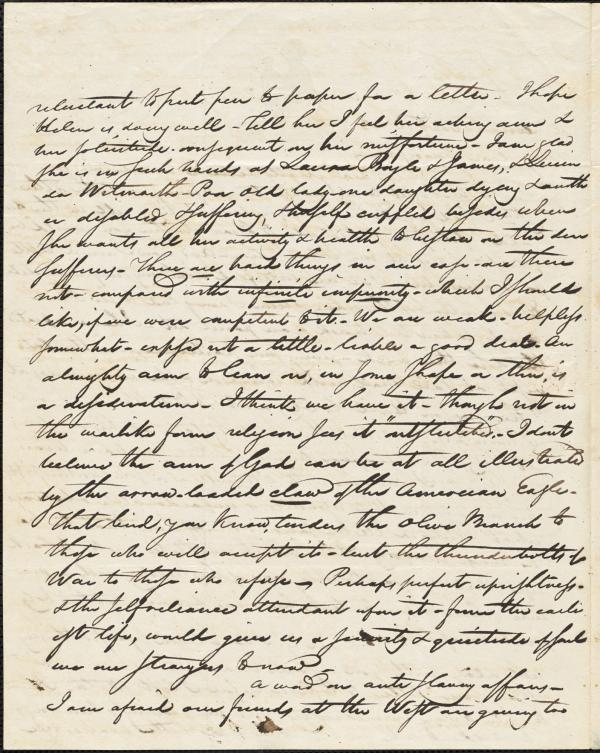 reluctant to put pen to paper for a letter - I hope
Helen is doing well - Tell her I feel her aching arm &
her solicitude consequent on her misfortune - I am glad
she is in such hands as Laura Boyle & James, &
da Wilmarth - Poor old lady - one daughter dying & another
disabled & suffering, & herself crippled besides when
she wants all her activity & health to bestow on the dear
sufferers - These are hard things in our case - are there
not - compared with infinite impunity - which I should
like, if we were competent to it - We are weak - helpless
somewhat - exposed not a little - liable a good deal. An
almighty arm to lean on, in some shape or this, is
a desideratum - I think we have it - though not in
the warlike form religion sees it "outstretched". - I don't
believe the arm of God can be at all illustrated
by the arrow-loaded claw of the American Eagle -
That bird, you know, tenders the Olive Branch to
those who will accept it - but the thunderbolts of
War to those who refuse - Perhaps perfect uprightness -
& the self reliance attendant upon it - from the earli
est life, would give us a security & quietude of soul
we are strangers to now -
A word on anti slavery affairs -
I am afraid our friends at the West are going too